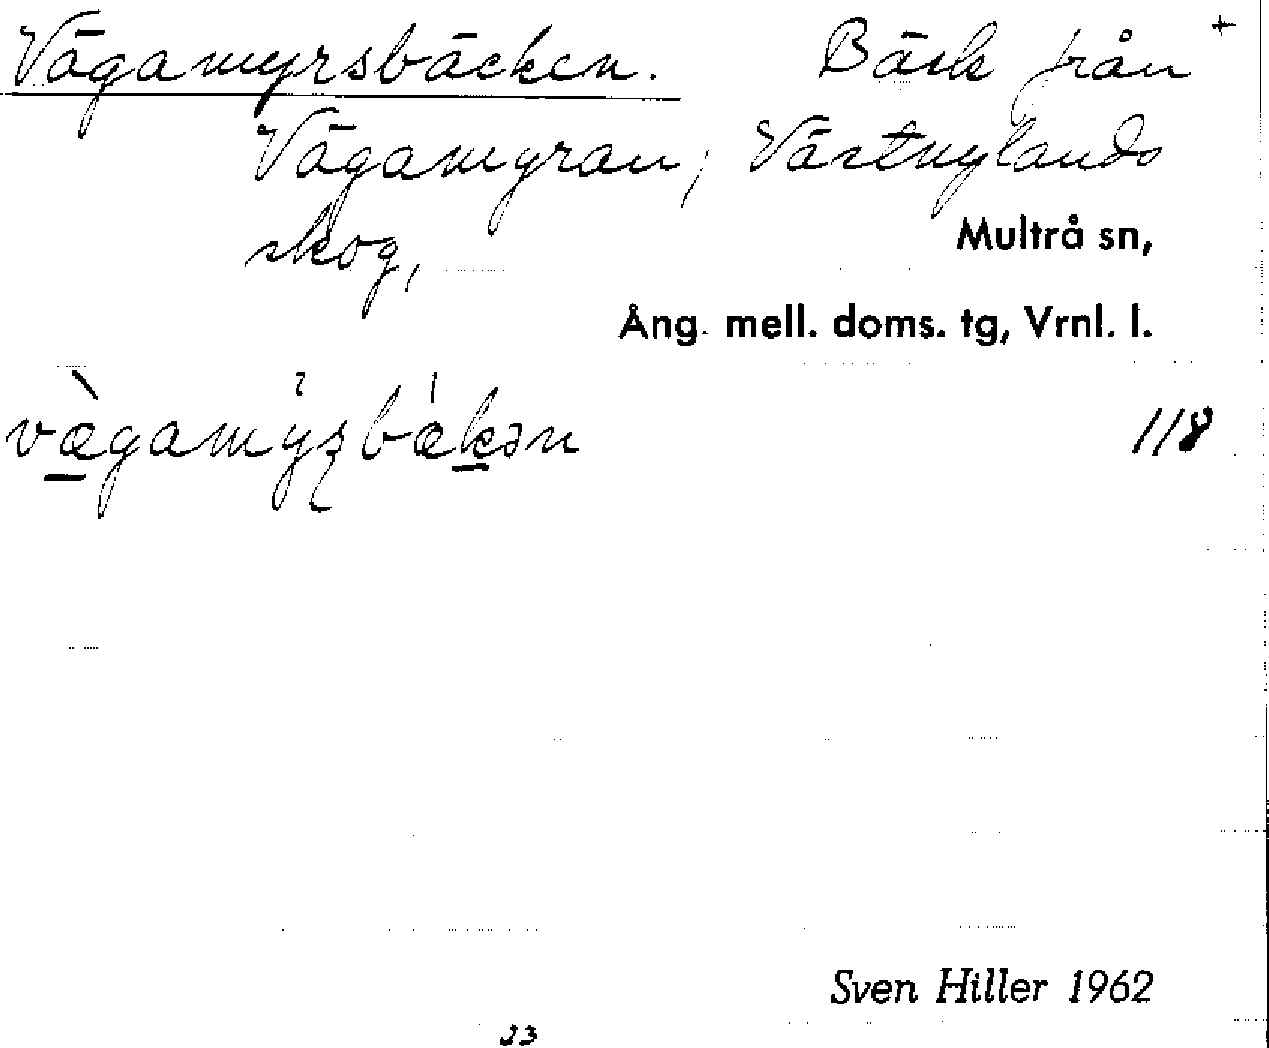 Vägamyrsbäcken. Bäck från +
Vägamyran, Västnylands
skog, Multrå sn,
Ång. mell. doms. tg, Vrnl. l.
118
Sven Hiller 1962
23